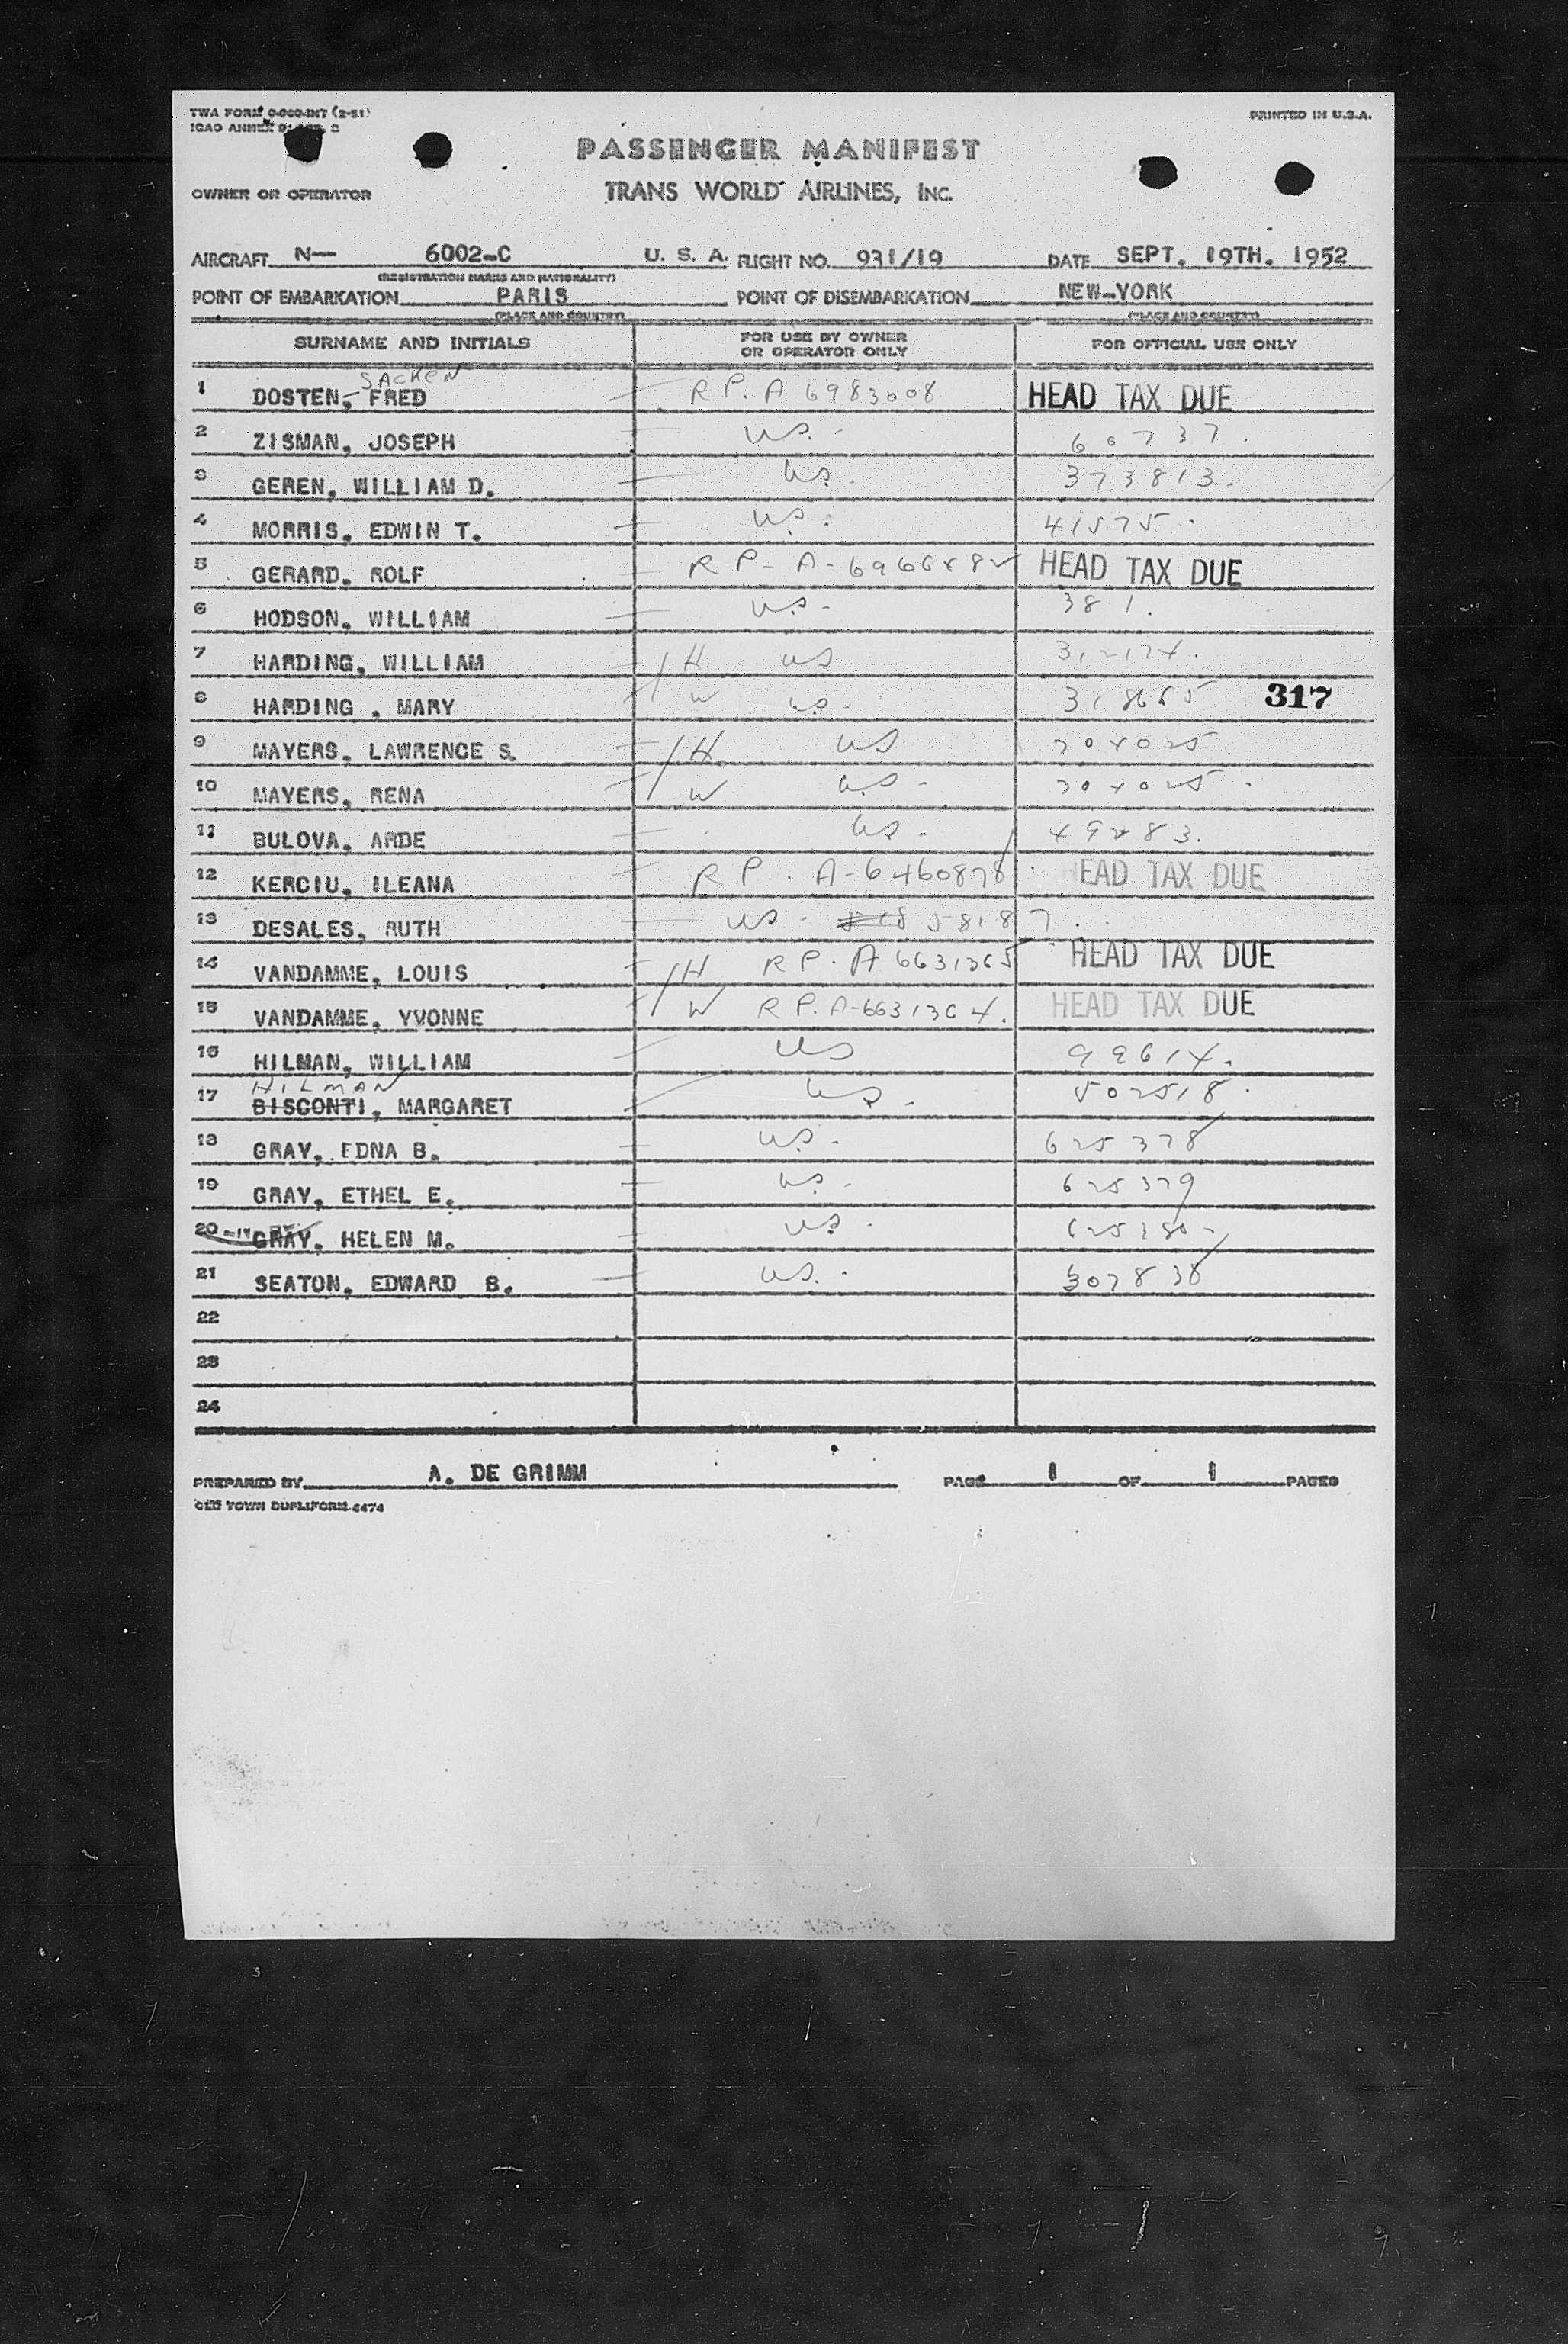 TWA FORM
PRINTED IN U.S.A.
ICAO ANNEX
PASSENGER MANIFEST
OWNER OR OPERATOR
TRANS WORLD AIRLINES, INC.
AIRCRAFT N— 6002-C U. S. A. FLIGHT NO. 931/19 DATE SEPT. 19TH. 1952
(REGISTRATION MARKS AND NATIONALITY)
POINT OF EMBARKATION PARIS POINT OF DISEMBARKATION NEW-YORK
(PLACE AND COUNTRY) (PLACE AND COUNTRY)
SURNAME AND INITIALS FOR USE BY OWNER OR OPERATOR ONLY FOR OFFICIAL USE ONLY
SACKEN
1 DOSTEN,- FRED R.P. A 6983008 HEAD TAX DUE
2 ZISMAN, JOSEPH U.S. 60737.
3 GEREN, WILLIAM D. U.S. 373813.
4 MORRIS, EDWIN T. U.S. 41575.
5 GERARD, ROLF R P - A - HEAD TAX DUE
6 HODSON, WILLIAM U.S. 381.
7 HARDING, WILLIAM H US 312174.
8 HARDING , MARY W U.S. 317
9 MAYERS, LAWRENCE S. H. US 704025
10 MAYERS, RENA W U.S. 704025.
11 BULOVA, ARDE U.S. 49283.
12 KERCIU, ILEANA R P. A-6460878 HEAD TAX DUE
13 DESALES, RUTH US. 58187.
14 VANDAMME, LOUIS H R P. A 6631365 HEAD TAX DUE
15 VANDAMME, YVONNE W R P. A-6631364. HEAD TAX DUE
16 HILMAN, WILLIAM US 99614.
HILMAN
17 BISCONTI, MARGARET U.S. 502518.
18 GRAY, EDNA B. U.S. 625378
19 GRAY, ETHEL E. U.S. 625379
20 GRAY, HELEN M. U.S. 625380
21 SEATON, EDWARD B. U.S. 307838
22
23
24
PREPARED BY A. DE GRIMM PAGE 1 OF 1 PAGES